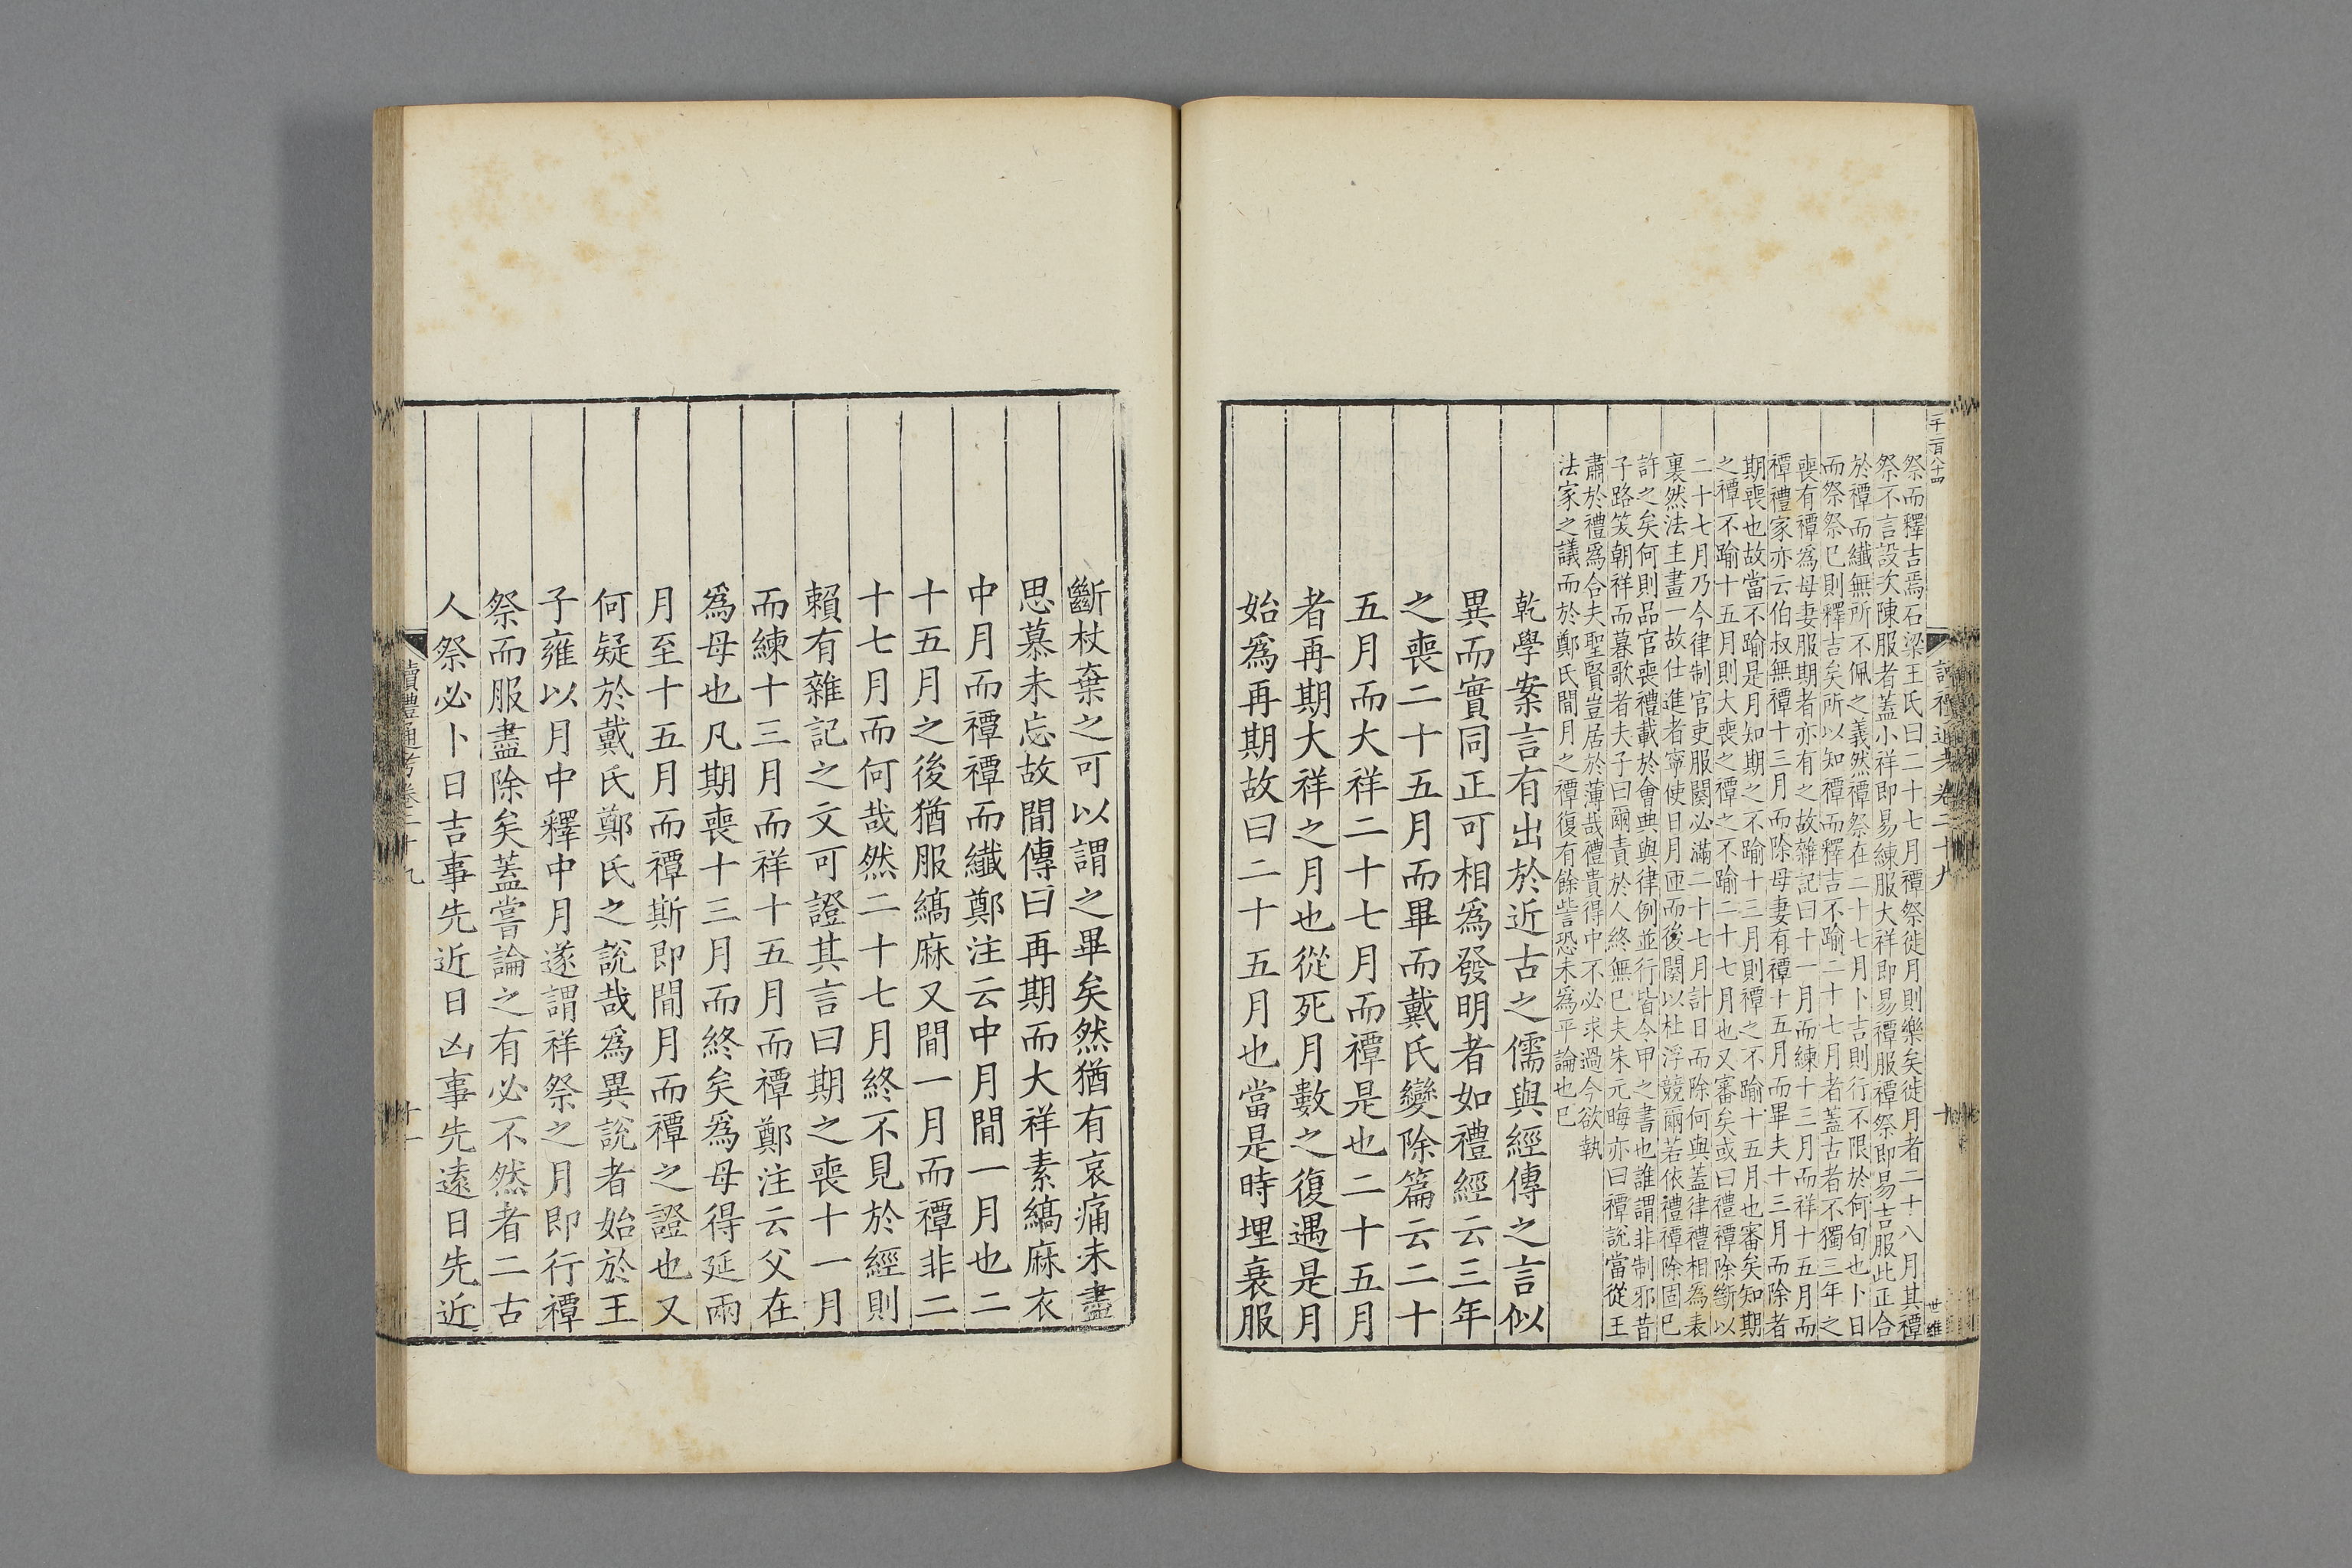 二千二百八十四
祭而釋吉焉石梁王氏曰二十七月禫祭徙月則樂矣徙月者二十八月其禫
祭不言設次陳服者蓋小祥即易練服大祥即易禫服禫祭即易吉服此正合
於禫而纖無所不佩之義然禫祭在二十七月卜吉則行不限於何旬也卜日
而祭祭已則釋吉矣所以知禫而釋吉不踰二十七月者蓋古者不獨三年之
喪有禫爲母妻服期者亦有之故雜記曰十一月而練十三月而祥十五月而
禫禮家亦云伯叔無禫十三月而除母妻有禫十五月而畢夫十三月而除者
期喪也故當不踰是月知期之不踰十三月則禫之不踰十五月也審矣知期
之禫不踰十五月則大喪之禫之不踰二十七月也又審矣或曰禮禫除斷以
二十七月乃今律制官吏服闋必滿二十七月計日而除何與蓋律禮相爲表
裏然法主畫一故仕進者寧使日月匝而後闋以杜浮競爾若依禮禫除固已
許之矣何則品官喪禮載於會典與律例並行皆令甲之書也誰謂非制邪昔
子路笑朝祥而暮歌者夫子曰爾責於人終無已夫朱元晦亦曰禫說當從王
肅於禮爲合夫聖賢豈居於薄哉禮貴得中不必求過今欲執
法家之議而於鄭氏間月之禫復有餘訾恐未爲平論也已
乾學案言有出於近古之儒與經傳之言似
異而實同正可相爲發明者如禮經云三年
之喪二十五月而畢而戴氏變除篇云二十
五月而大祥二十七月而禫是也二十五月
者再期大祥之月也從死月數之復遇是月
始爲再期故曰二十五月也當是時埋衰服
斷杖棄之可以謂之畢矣然猶有哀痛未盡
思慕未忘故間傳曰再期而大祥素縞麻衣
中月而禫禫而纖鄭注云中月間一月也二
十五月之後猶服縞麻又間一月而禫非二
十七月而何哉然二十七月終不見於經則
賴有雜記之文可證其言曰期之喪十一月
而練十三月而祥十五月而禫鄭注云父在
爲母也凡期喪十三月而終矣爲母得延兩
月至十五月而禫斯即間月而禫之證也又
何疑於戴氏鄭氏之說哉爲異說者始於王
子雍以月中釋中月遂謂祥祭之月即行禫
祭而服盡除矣蓋嘗論之有必不然者二古
人祭必卜日吉事先近日凶事先遠日先近
讀禮通考卷二十九
十一